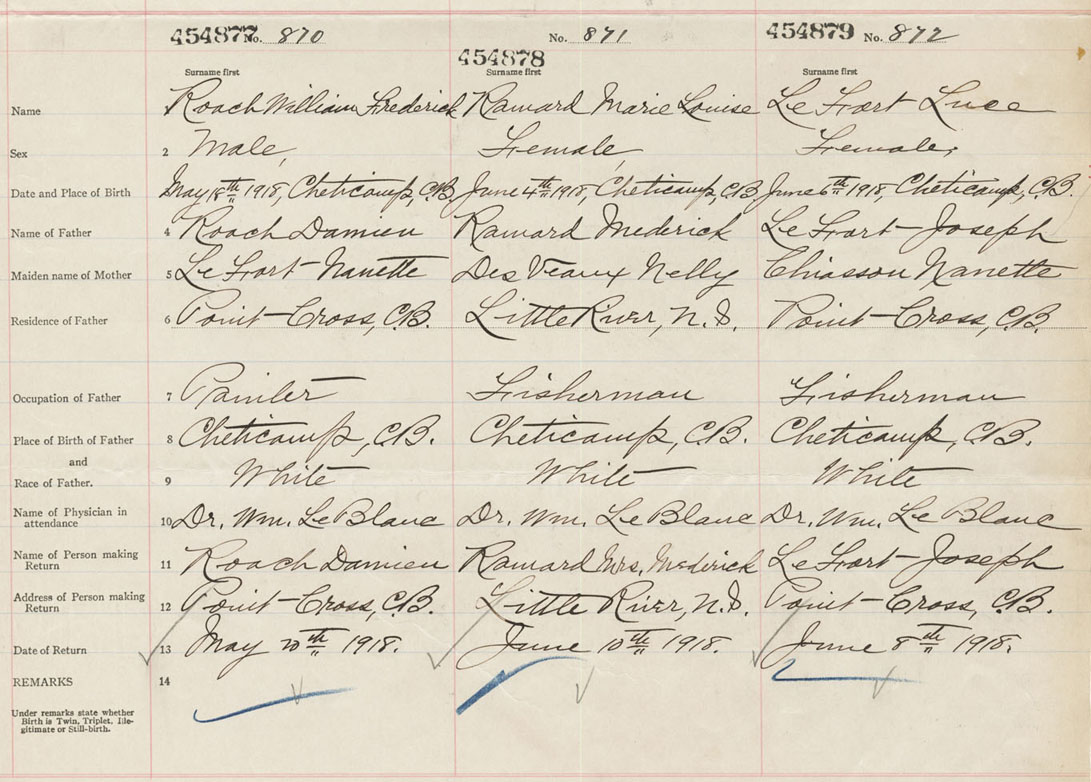 454877 No. 870 No. 871 454879 No. 872
454878
Surname first Surname first Surname first
Name Roach William Frederick Ramard Marie Louise Le Fort Luce
Sex 2 Male, Female, Female,
Date and Place of Birth May 18th 1918, Cheticamp, C.B. June 4th 1918, Cheticamp, C.B. June 6th 1918, Cheticamp, C.B.
Name of Father 4 Roach Damien Ramard Mederick Le Fort Joseph
Maiden name of Mother 5 Le Fort Nanette Des Veaux Nelly Chiasson Nanette
Residence of Father 6 Point Cross, C.B. Little River, N.S. Point Cross, C.B.
Occupation of Father 7 Painter Fisherman Fisherman
Place of Birth of Father 8 Cheticamp, C.B. Cheticamp, C.B. Cheticamp, C.B.
and
Race of Father. 9 White White White
Name of Physician in
attendance 10 Dr. Wm. Le Blanc Dr. Wm. Le Blanc Dr. Wm. Le Blanc
Name of Person making
Return 11 Roach Damien Ramard Mrs. Mederick Le Fort Joseph
Address of Person making
Return 12 Point Cross, C.B. Little River, N.S. Point Cross, C.B.
Date of Return 13 May 20th 1918. June 10th 1918. June 8th 1918.
REMARKS 14
Under remarks state whether
Birth is Twin, Triplet, Ille-
gitimate or Still-birth.